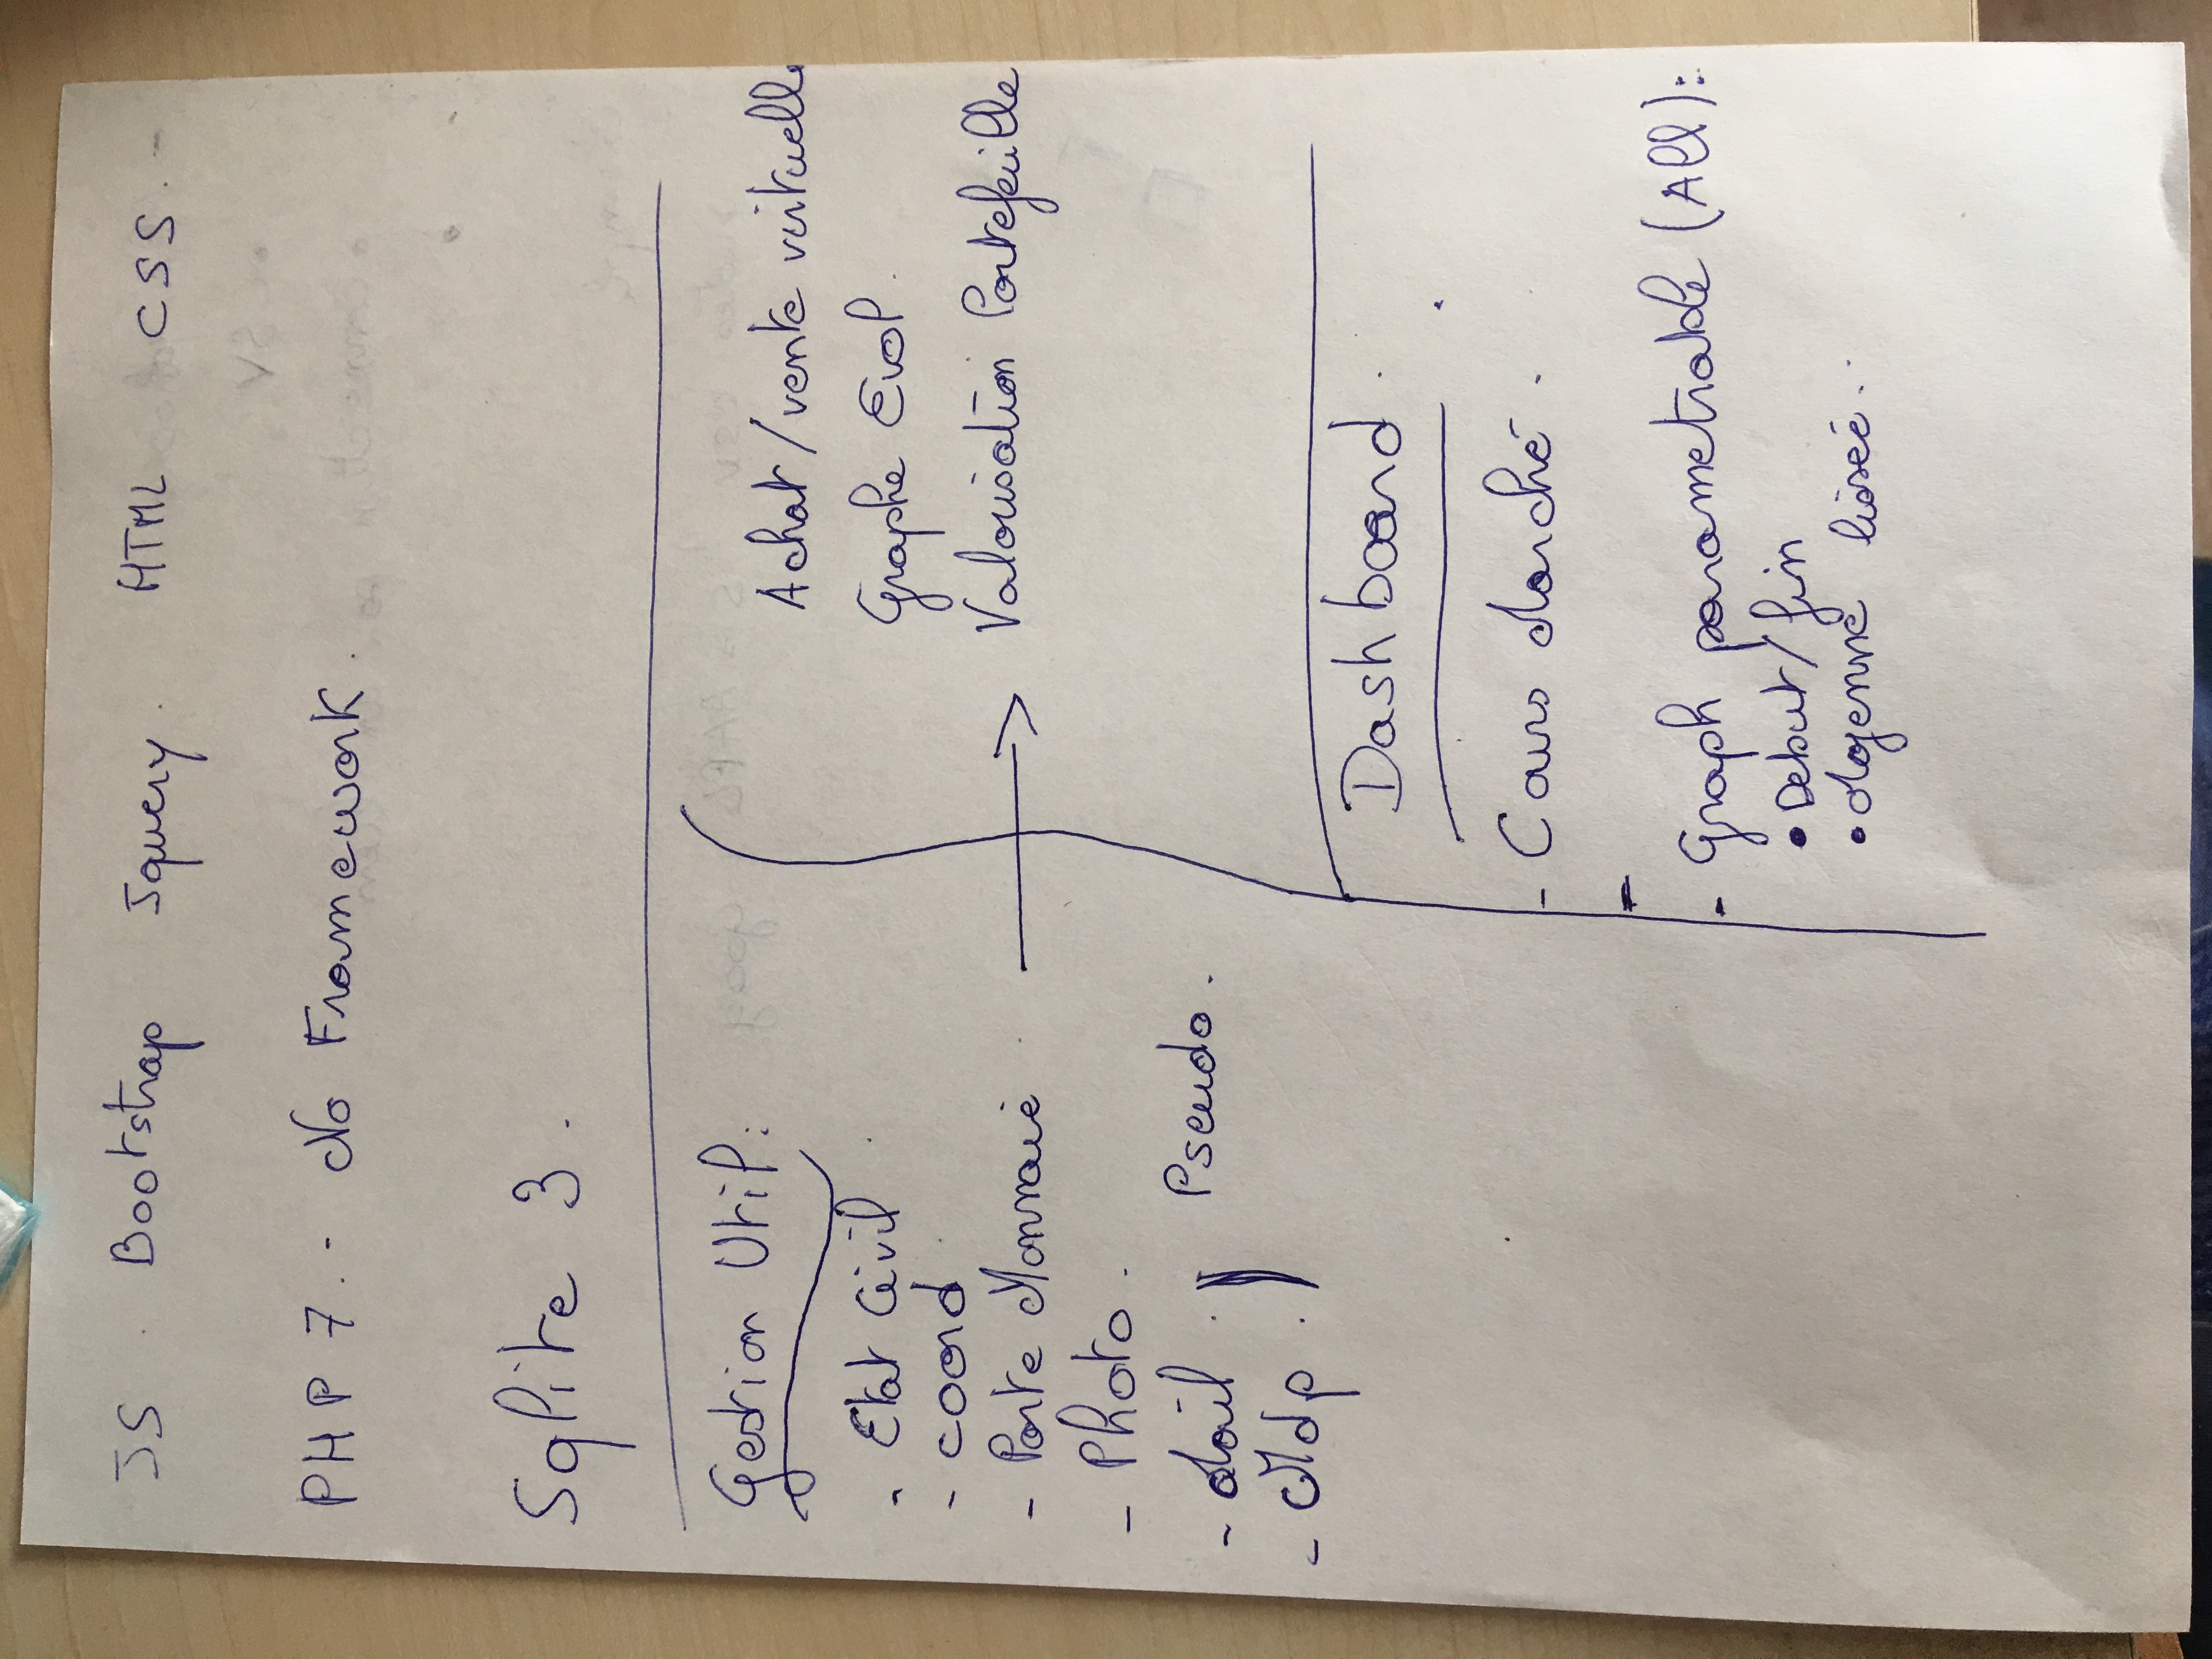 JS . Bootstrap Jquery. HTML CSS. -
PHP 7. - No Framework.
Sqlite 3.
Gestion Util:
- Etat Civil
- coord
- Porte Monnaie
- Photo.
- Mail
- Mdp
Pseudo.
Achat/vente virtuelle
Graphe Evol.
Valorisation Portefeuille
Dashboard.
- Cours Marché.
-
- Graph parametrable (All):
• Debut/fin
• Moyenne lissée.